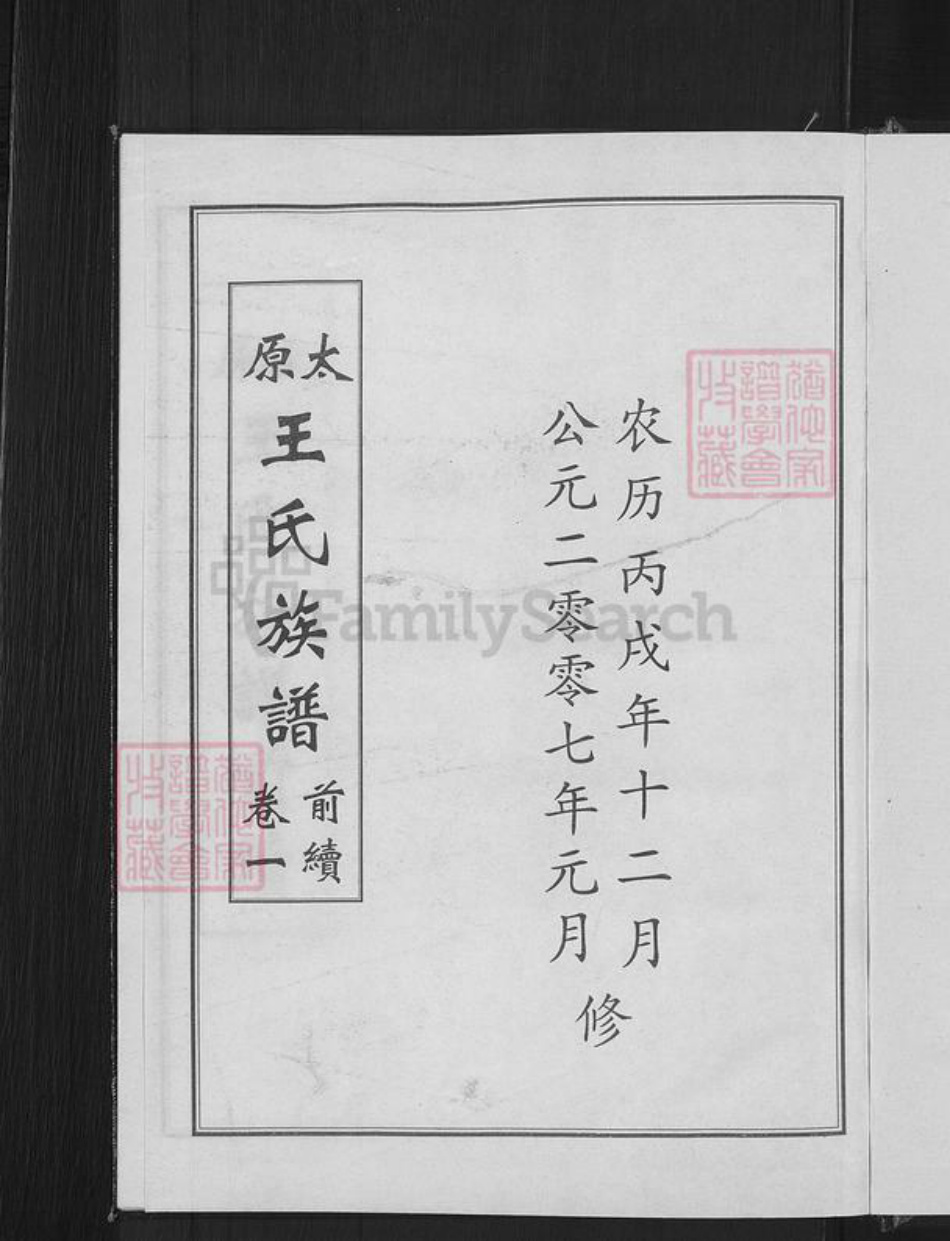 农历丙戌年十二月
公元二零零七年元月
修
太原
王氏族譜
前續
卷一
猶他家
譜學會
收藏
猶他家
譜學會
收藏
FamilySearch